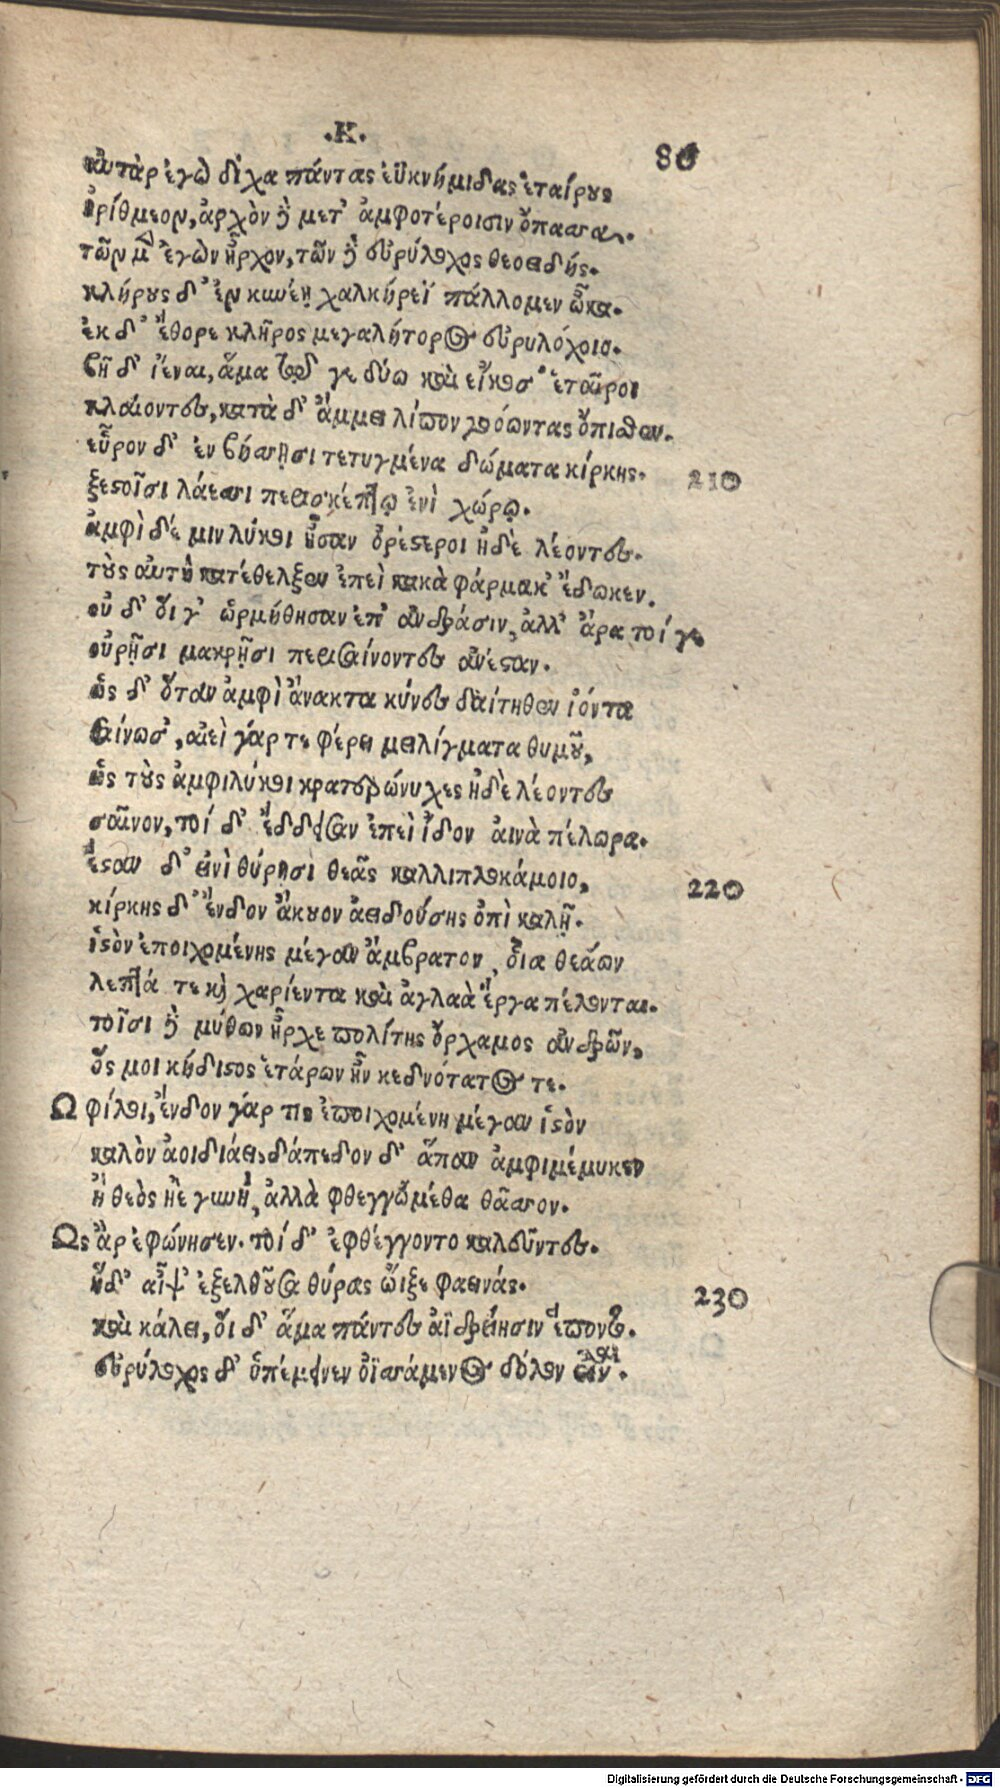 .Κ.
86
αὐτὰρ ἐγὼ δίχα πάντας ἐϋκνήμιδας ἑταίρους
ἠρίθμεον, ἀρχὸν δὲ μετ' ἀμφοτέροισιν ὄπασσα.
τῶν μὲν ἐγὼν ἦρχον, τῶν δὲ εὐρύλοχος θεοειδής.
κλήρους δ' ἐν κυνέῃ χαλκήρεϊ πάλλομεν ὦκα.
ἐκ δ' ἔθορε κλῆρος μεγαλήτορος εὐρυλόχοιο.
βῆ δ' ἰέναι, ἅμα τῷ γε δύω καὶ εἴκοσ' ἑταῖροι
κλαίοντες, κατὰ δ' ἄμμε λίπον γοόωντας ὄπισθεν.
εὗρον δ' ἐν βήσσῃσι τετυγμένα δώματα κίρκης. 210
ξεστοῖσι λάεσσι περισκέπτῳ ἐνὶ χώρῳ.
ἀμφὶ δέ μιν λύκοι ἦσαν ὀρέστεροι ἠδὲ λέοντες.
τοὺς αὐτὴ κατέθελξεν ἐπεὶ κακὰ φάρμακ' ἔδωκεν.
οὐ δ' οἵ γ' ὡρμήθησαν ἐπ' ἀνδράσιν, ἀλλ' ἄρα τοί γε
οὐρῇσι μακρῇσι περισσαίνοντες ἀνέσταν.
ὡς δ' ὅταν ἀμφὶ ἄνακτα κύνες δαίτηθεν ἰόντα
σαίνωσ', αἰεὶ γάρ τε φέρει μειλίγματα θυμοῦ,
ὣς τοὺς ἀμφιλύκοι κρατερώνυχες ἠδὲ λέοντες
σαῖνον, τοὶ δ' ἔδδεισαν ἐπεὶ ἴδον αἰνὰ πέλωρα.
ἔσταν δ' εἰνὶ θύρῃσι θεᾶς καλλιπλοκάμοιο, 220
κίρκης δ' ἔνδον ἄκουον ἀειδούσης ὀπὶ καλῇ.
ἱστὸν ἐποιχομένης μέγαν ἄμβροτον, οἷα θεάων
λεπτά τε καὶ χαρίεντα καὶ ἀγλαὰ ἔργα πέλονται.
τοῖσι δὲ μύθων ἦρχε πολίτης ὄρχαμος ἀνδρῶν,
ὅς μοι κήδιστος ἑτάρων ἦν κεδνότατος τε.
Ω φίλοι, ἔνδον γάρ τις ἐποιχομένη μέγαν ἱστὸν
καλὸν ἀοιδιάει, δάπεδον δ' ἅπαν ἀμφιμέμυκεν
ἢ θεὸς ἠὲ γυνή, ἀλλὰ φθεγγώμεθα θᾶσσον.
Ως ἄρ ἐφώνησεν. τοὶ δ' ἐφθέγγοντο καλεῦντες.
ἡ δ' αἶψ' ἐξελθοῦσα θύρας ὤϊξε φαεινάς. 230
καὶ κάλει, οἱ δ' ἅμα πάντες ἀϊδρείῃσιν ἕποντο.
εὐρύλοχος δ' ὑπέμεινεν ὀϊσσάμενος δόλον εἶναι.
Digitalisierung gefördert durch die Deutsche Forschungsgemeinschaft - DFG